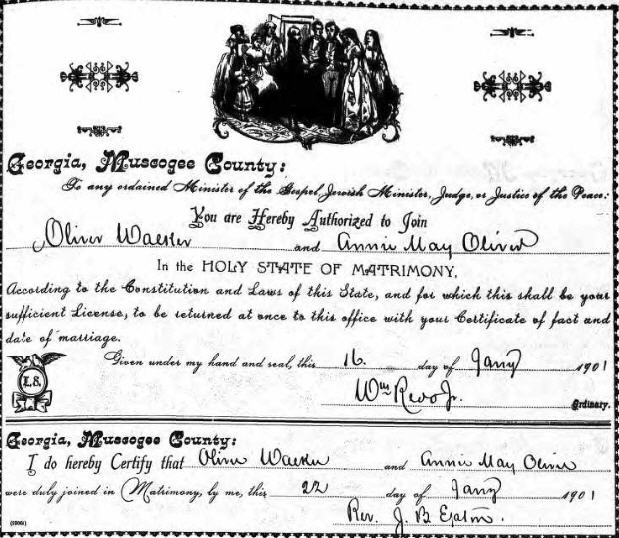 Georgia, Muscogee County:
To any ordained Minister of the Gospel, Jewish Minister, Judge, or Justice of the Peace:
You are Hereby Authorized to Join
Oliver Walker and Annie May Oliver
In the HOLY STATE OF MATRIMONY,
According to the Constitution and Laws of this State, and for which this shall be your
sufficient License, to be returned at once to this office with your Certificate of fact and
date of marriage.
L.S.
Given under my hand and seal, this 16 day of Jany 1901
Wm Jr.
Ordinary.
Georgia, Muscogee County:
I do hereby Certify that Oliver Walker and Annie May Oliver
were duly joined in Matrimony, by me, this 22 day of Jany 1901
Rev. J. B.